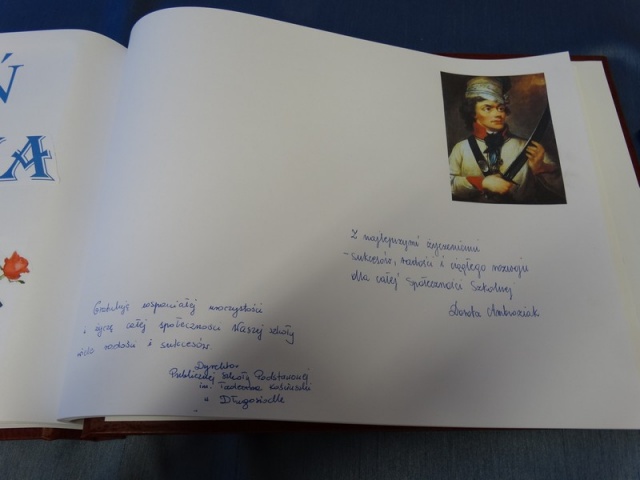 Ń
KA
Z najlepszymi życzeniami
- sukcesów, radości i ciągłego rozwoju
dla całej Społeczności Szkolnej
Dorota Ambroziak
Gratuluję wspaniałej uroczystości
i życzę całej społeczności Waszej szkoły
wielu radości i sukcesów.
Dyrektor
Publicznej Szkoły Podstawowej
im. Tadeusza Kościuszki
w Długosiodle